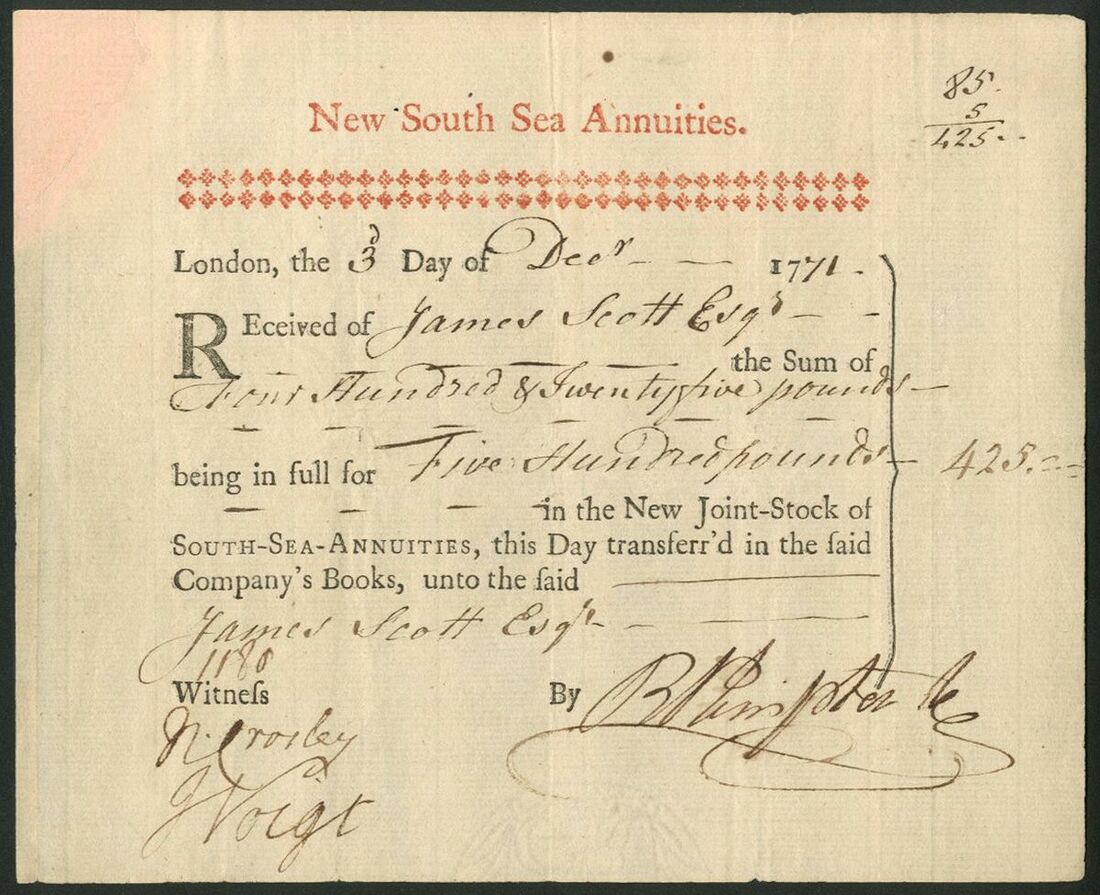 85.
5
425.-
New South Sea Annuities.
London, the 3d Day of Decr 1771.
REceived of James Scott Esqr
the Sum of
Four Hundred & Twenty five pounds
being in full for Five Hundred pounds 425.
in the New Joint-Stock of
SOUTH-SEA-ANNUITIES, this Day transferr'd in the ſaid
Company's Books, unto the ſaid
James Scott Esqr
Witneſs By
N. Crosley
J Voigt